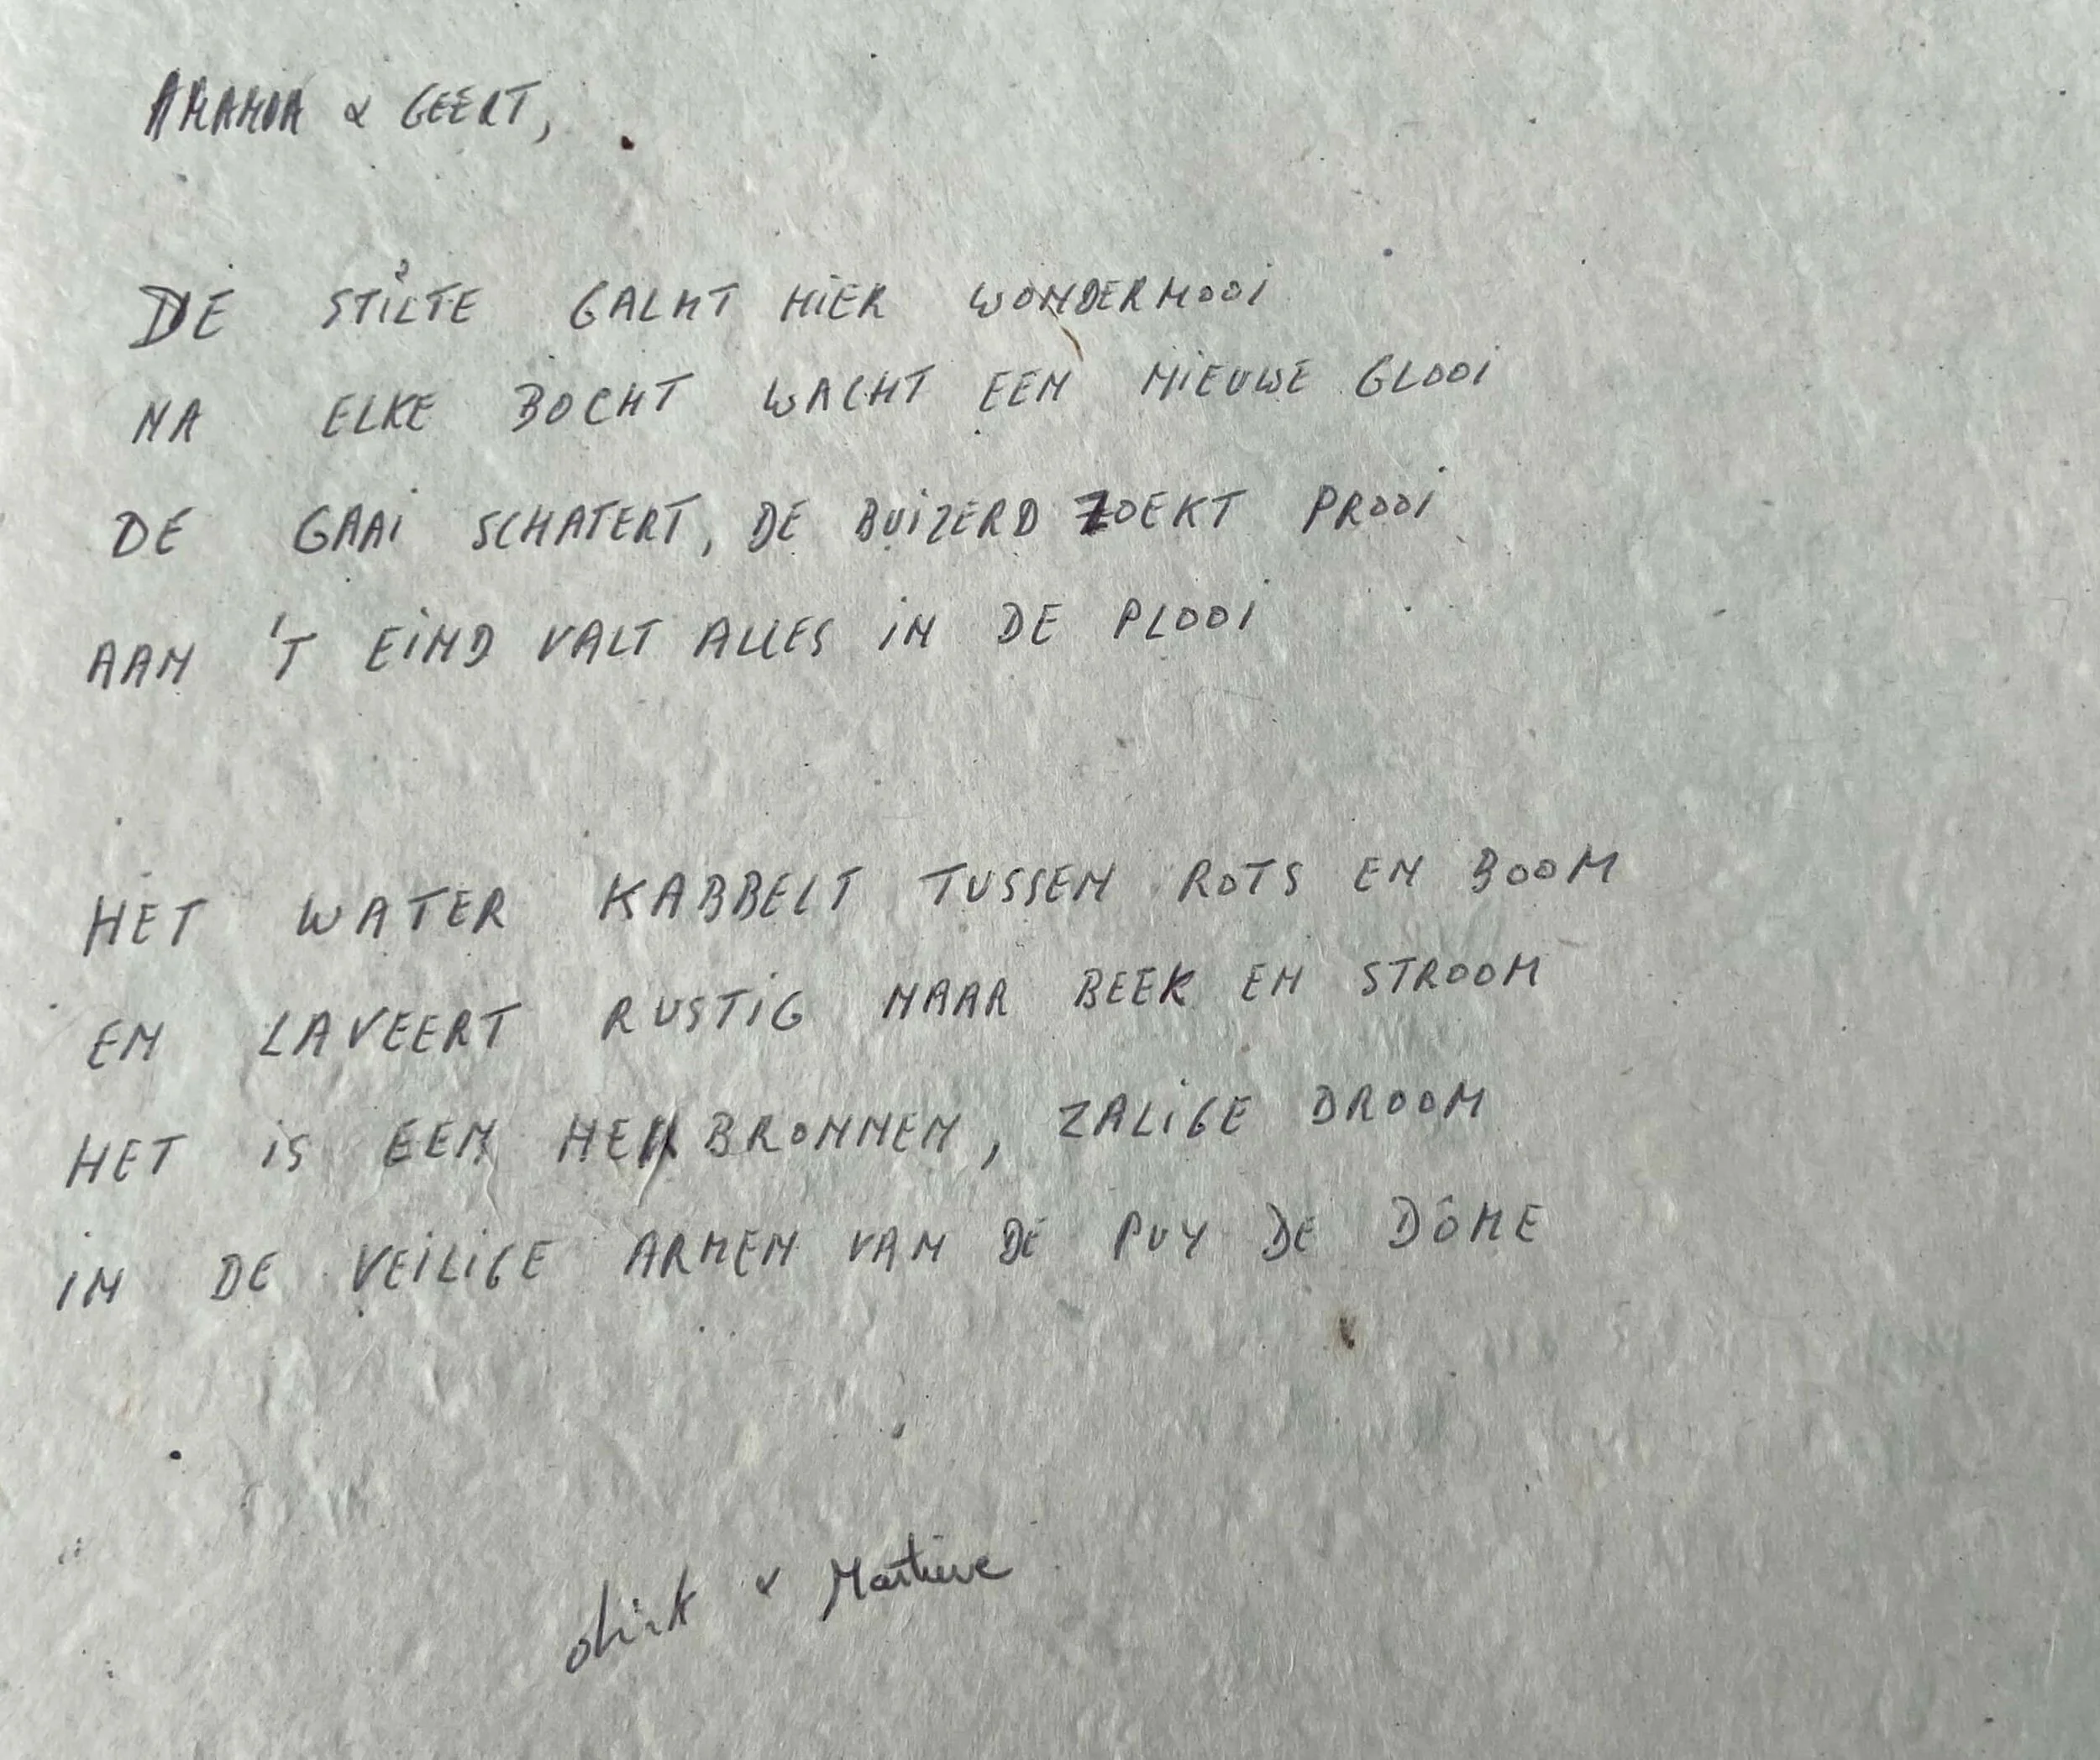 AMANDA & GEERT,
DE STILTE GALMT HIER WONDERMOOI
NA ELKE BOCHT WACHT EEN NIEUWE GLOOI
DE GAAI SCHATERT, DE BUIZERD ZOEKT PROOI
AAN 'T EIND VALT ALLES IN DE PLOOI
HET WATER KABBELT TUSSEN ROTS EN BOOM
EN LAVEERT RUSTIG NAAR BEEK EN STROOM
HET IS EEN HERBRONNEN, ZALIGE DROOM
IN DE VEILIGE ARMEN VAN DE PUY DE DÔME
dirk &